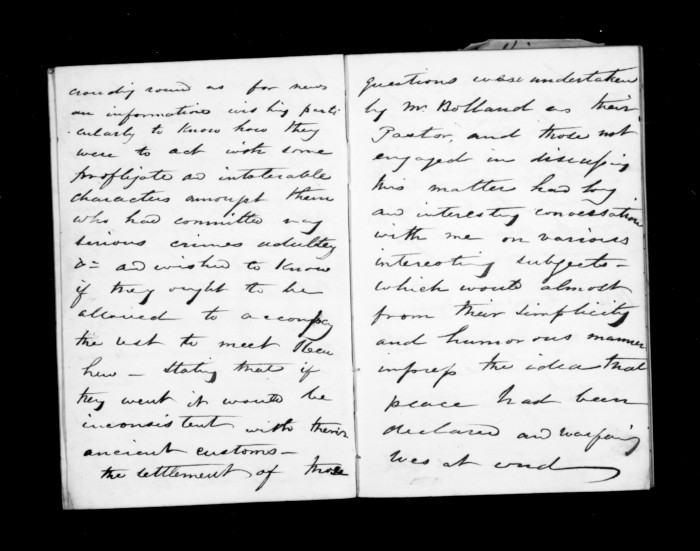 crowding round us for news
an information wishing parti
cularly to know how they
were to act with some
profligate ad intolerable
characters amongst them
who had committed very
serious crimes adultery
&c ad wished to know
if they ought to be
allowed to accompany
the rest to meet
hew — Stating that if
they went it would be
inconsistent with their
ancient customs —
the settlement of those
questions was undertaken
by Mr Bolland as their
Pastor, and those not
engaged in discussing
this matter had long
an interesting conversation
with me on various
interesting subjects —
which would almost
from their simplicity
and humorous manner
impress the idea that
peace had been
declared and warfaring
was at end